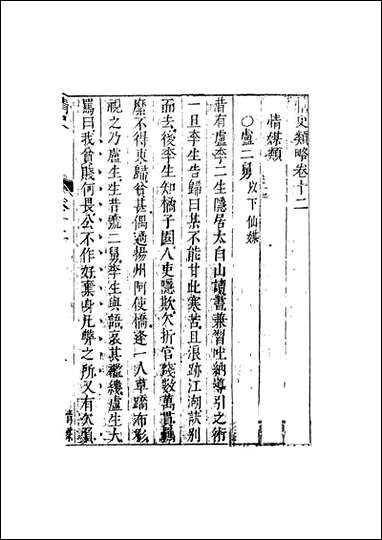 情史類略卷十二
情媒類
〇盧二舅 以下仙媒
昔有盧李二生隱居太白山讀書兼習吐納導引之術
一旦李生告歸曰某不能甘此寒苦且浪跡江湖訣別
而去後李生知橘子園人吏隱欺欠折官錢數萬貫羈
縻不得東歸貧甚偶過揚州阿使橋逢一人草蹻布衫
視之乃盧生生昔號二舅李生與語哀其襤縷盧生大
罵曰我貧賤何畏公不作好棄身凡弊之所又有欠負
情史 卷十二
情媒